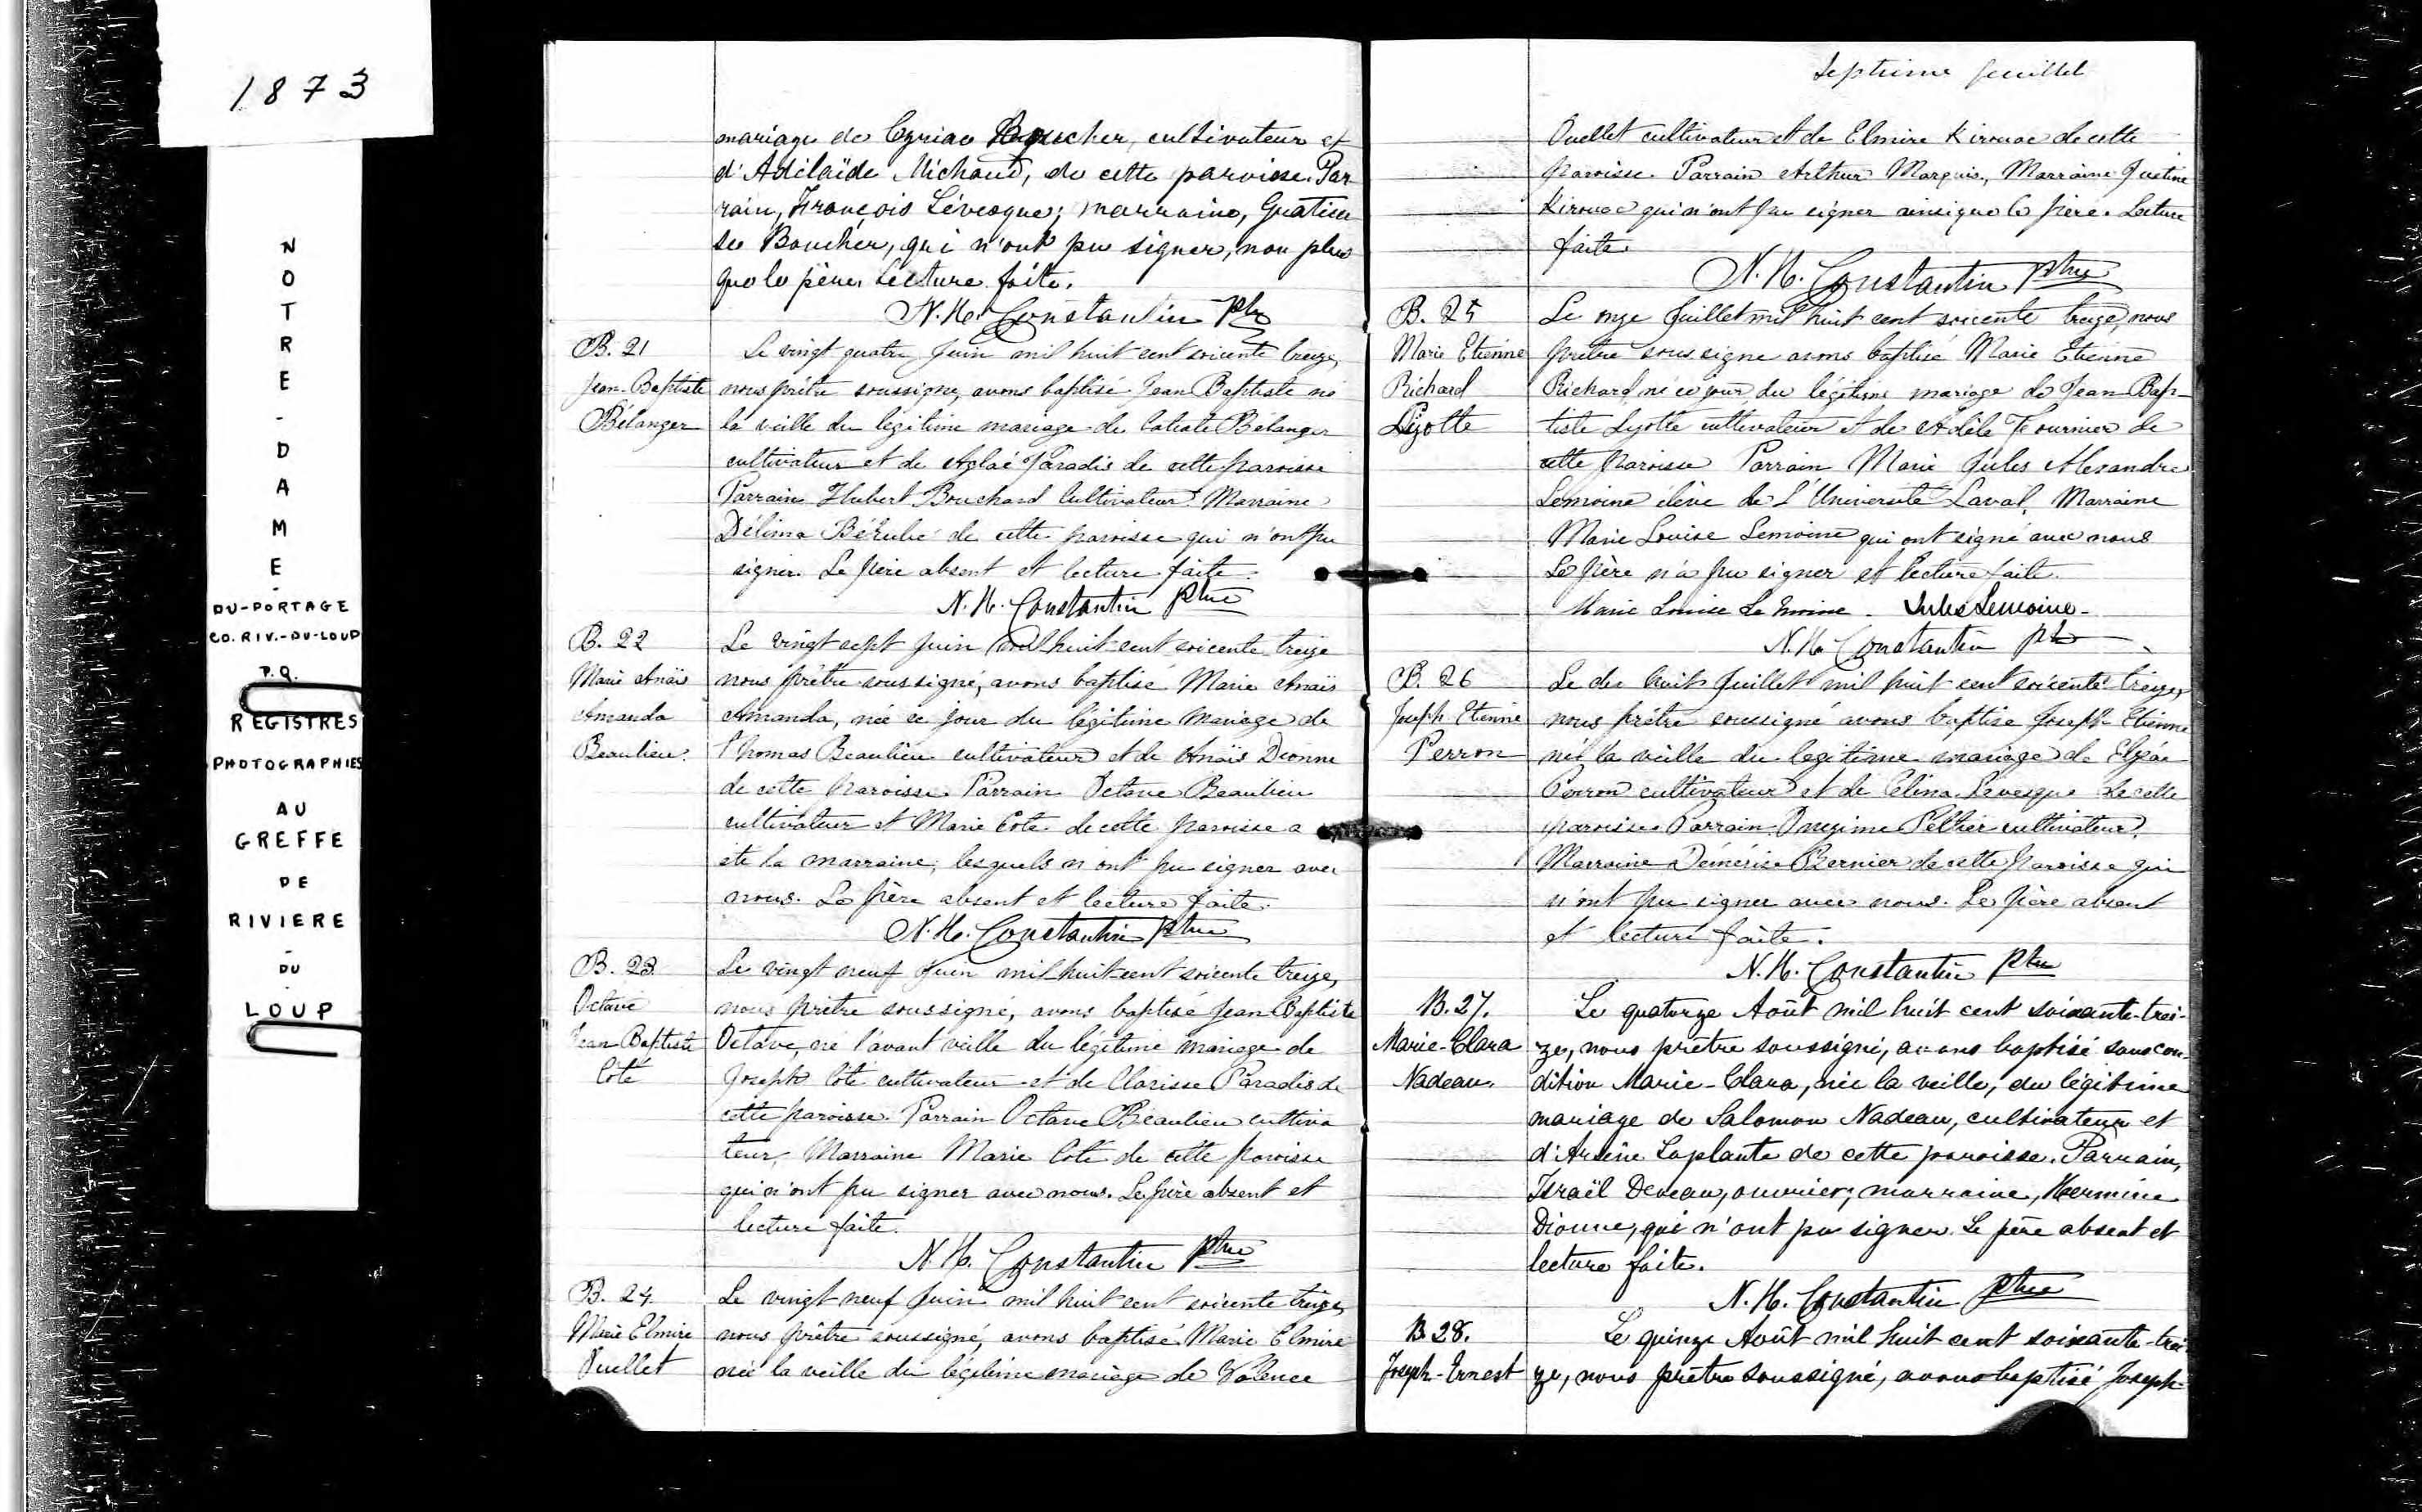 1873
NOTRE-DAME-
DU-PORTAGE
CO. RIV.-DU-LOUP
P.Q.
REGISTRES
PHOTOGRAPHIES
AU
GREFFE
DE
RIVIERE
-
DU
-
LOUP
mariage de Cyriac Boucher, cultivateur et
d'Adélaïde Michaud, de cette paroisse. Par
rain, François Lévesque; marraine,
Boucher, qui n'ont pu signer, non plus
que le père. Lecture faite.
N. H. Constantin Ptre
B. 21
Jean-Baptiste
Bélanger
Le vingt quatre Juin mil huit cent soicente treize,
nous prêtre soussigné, avons baptisé Jean Baptiste né
la veille du légitime mariage de Bélanger
cultivateur et de Aglaé Paradis de cette paroisse
Parrain Hubert Bouchard Cultivateur Marraine
Délima Bérubé de cette paroisse qui n'ont pu
signer. Le père absent et lecture faite.
N. H. Constantin Ptre
B. 22
Marie Anaïs
Amanda
Beaulieu.
Le vingt sept Juin mil huit cent soicente treize
nous prêtre soussigné, avons baptisé Marie Anaïs
Amanda, née ce jour du légitime mariage de
Thomas Beaulieu cultivateur et de Anaïs Dionne
de cette paroisse. Parrain Octave Beaulieu
cultivateur et Marie Coté de cette paroisse a
été la marraine, lesquels n'ont pu signer avec
nous. Le père absent et lecture faite.
N. H. Constantin Ptre
B. 23.
Octave
Jean-Baptiste
Coté
Le vingt neuf Juin mil huit-cent soicente treize,
nous prêtre soussigné, avons baptisé Jean Baptiste
Octave, né l'avant veille du légitime mariage de
Joseph Coté cultivateur et de Clarisse Paradis de
cette paroisse. Parrain Octave Beaulieu cultiva
teur, Marraine Marie Coté de cette paroisse
qui n'ont pu signer avec nous. Le père absent et
lecture faite.
N. H. Constantin Ptre
B. 24.
Marie Elmire
Ouellet
Le vingt neuf Juin mil huit cent soicente treize,
nous prêtre soussigné, avons baptisé Marie Elmire
née la veille du légitime mariage de Valence
Septième feuillet
Ouellet cultivateur et de Elmire Kirouac de cette
paroisse. Parrain Arthur Marquis, Marraine Justine
Kirouac qui n'ont pu signer ainsi que le père. Lecture
faite
N. H. Constantin Ptre
B. 25
Marie Etienne
Richard
Lizotte
Le onze Juillet mil huit cent soicente treize, nous
prêtre sous signe avons baptisé Marie Etienne
Richard né ce jour du légitime mariage de Jean-Bap-
tiste Lizotte cultivateur et de Adèle Fournier de
cette paroisse Parrain Marie Jules Alexandre
Lemoine élève de l'Université Laval, Marraine
Marie Louise Lemoine qui ont signé avec nous
Le père n'a pu signer et lecture faite.
Marie Louise Le Moine - Jules Lemoine -
N. H. Constantin ptre
B. 26
Joseph Etienne
Perron
Le dix huit Juillet mil huit cent soicente treize,
nous prêtre soussigné avons baptisé Joseph Etienne
né la veille du legitime mariage de Elzéar
Perron cultivateur et de Célina Levesque de cette
paroisse Parrain Onezime Peltier cultivateur,
Marraine Démérise Bernier de cette paroisse qui
n'ont pu signer avec nous. Le père absent
et lecture faite.
N. H. Constantin Ptre
B. 27.
Marie-Clara
Nadeau.
Le quatorze Août mil huit cent soixante-trei-
ze, nous prêtre soussigné, avons baptisé sous con-
dition Marie-Clara, née la veille, du légitime
mariage de Salomon Nadeau, cultivateur et
d'Arsène Laplante de cette paroisse. Parrain,
Israël Deveau, ouvrier; marraine, Hermine
Dionne, qui n'ont pu signer. Le père absent et
lecture faite.
N. H. Constantin Ptre
B 28.
Joseph-Ernest
Le quinze Août mil huit cent soixante-trei-
ze, nous prêtre soussigné, avons baptisé Joseph-